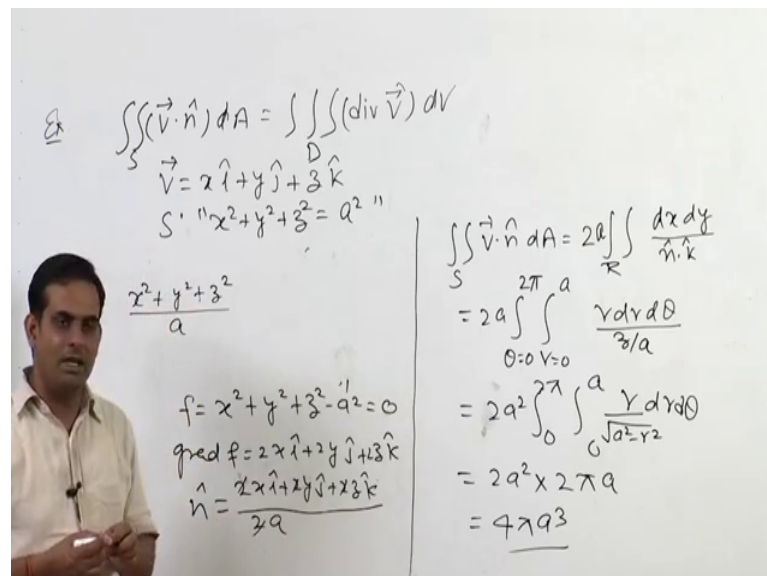 Ex ∬_S (v⃗·n̂) dA = ∭_D (div v⃗) dV
v⃗ = xî + yĵ + zk̂
S: "x² + y² + z² = a²"
(x² + y² + z²)/a
f = x² + y² + z² - a² = 0
grad f = 2xî + 2yĵ + 2zk̂
n̂ = (2xî + 2yĵ + 2zk̂)/2a
∬_S v⃗·n̂ dA = 2a ∬_R dxdy/(n̂·k̂)
= 2a ∫_{θ=0}^{2π} ∫_{r=0}^{a} r dr dθ/(z/a)
= 2a² ∫_0^{2π} ∫_0^a r/√(a²-r²) dr dθ
= 2a² × 2πa
= 4πa³